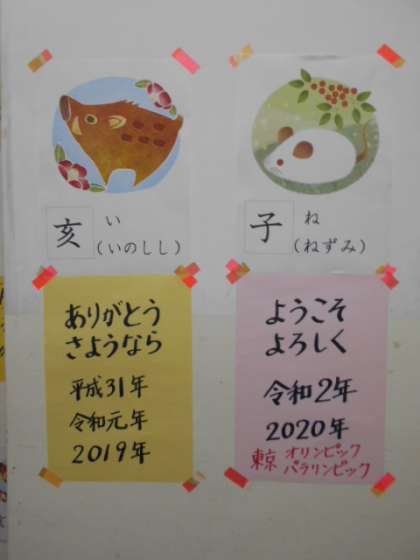 亥
い
(いのしし)
子
ね
(ねずみ)
ありがとう
さようなら
平成31年
令和元年
2019年
ようこそ
よろしく
令和2年
2020年
東京 オリンピック
パラリンピック